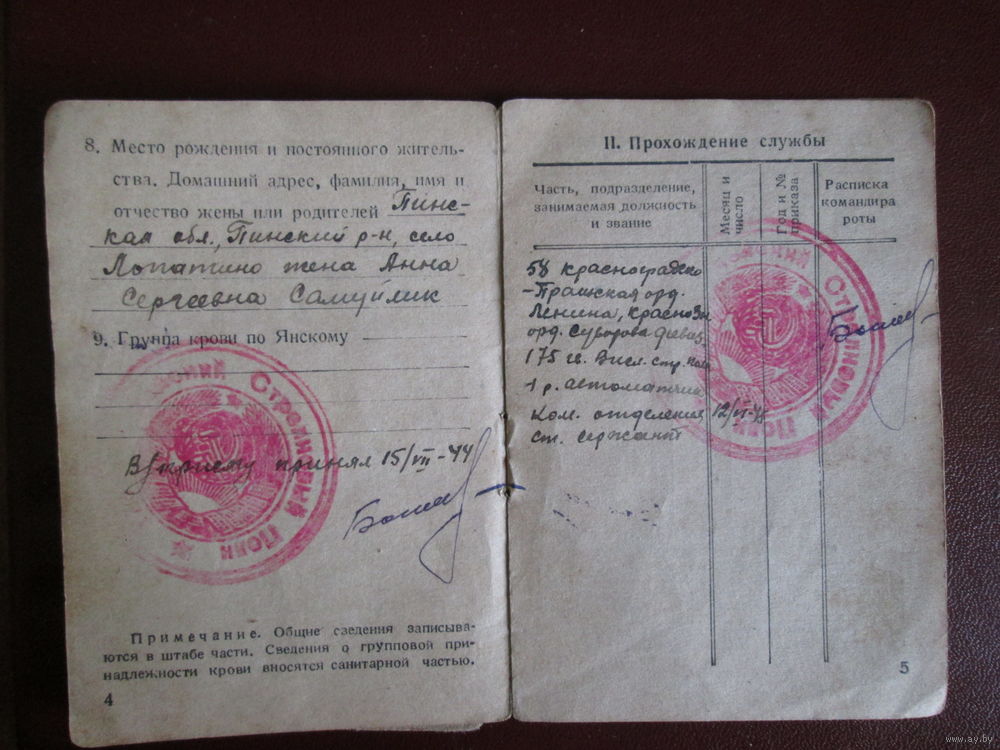 8. Место рождения и постоянного житель-
ства. Домашний адрес, фамилия, имя и
отчество жены или родителей Пинс-
кая обл., Пинский р-н, село
Лопатино жена Анна
Сергеевна Самуйлик
9. Группа крови по Янскому
Стрелковый Полк
В/присягу принял 15/VII-44
Примечание. Общие сведения записыва-
ются в штабе части. Сведения о групповой при-
надлежности крови вносятся санитарной частью.
4
II. Прохождение службы
Часть, подразделение,
занимаемая должность
и звание
Месяц и
число
Год и №
приказа
Расписка
командира
роты
58 Красноградско
-Пражская орд.
Ленина, Красноз
орд. Суворова дивиз
175 гв. стр. полк
1 р. автоматчик
Ком. отделения
ст. сержант
Стрелковый Полк
5
www.ay.by